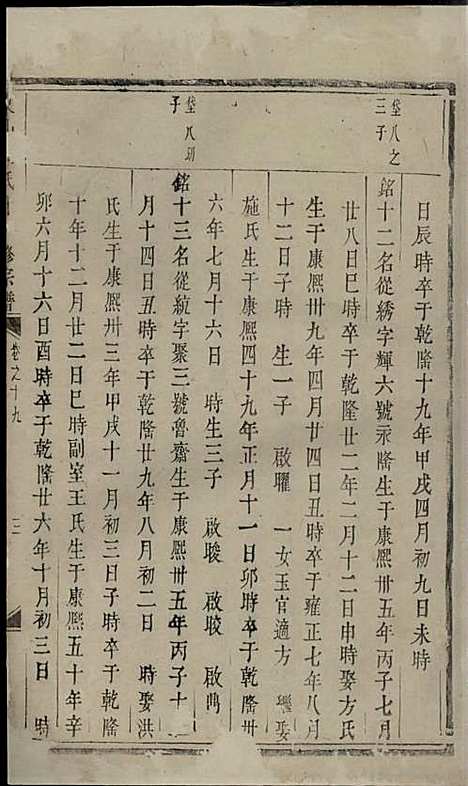 日辰時卒于乾隆十九年甲戌四月初九日未時
垡八之
三子
銘十二名從綉字輝六號永隆生于康熙卅五年丙子七月
廿八日巳時卒于乾隆廿二年二月十二日申時娶方氏
生于康熙卅九年四月廿四日丑時卒于雍正七年八月
十二日子時 生一子 啟曜 一女玉官適方 繼娶
施氏生于康熙四十九年正月十一日卯時卒于乾隆卅
六年七月十六日 時生三子 啟晙 啟晈 啟
垡八
子
銘十三名從紞字聚三號魯齋生于康熙卅五年丙子十
月十四日丑時卒于乾隆廿九年八月初二日 時娶洪
氏生于康熙卅三年甲戌十一月初三日子時卒于乾隆
十年十二月廿二日巳時副室王氏生于康熙五十年辛
卯六月十六日酉時卒于乾隆廿六年十月初三日 時
氏 修宗譜 卷之十九 三